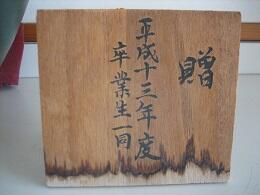 贈
平成十三年度
卒業生一同